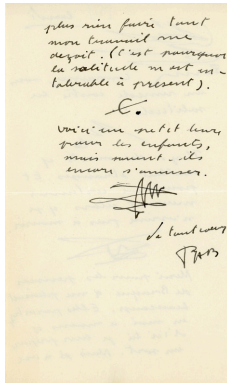 plus rien faire tant
mon travail me
déçoit. (C'est pourquoi
la solitude m'est in-
tolérable à présent).
Voici un petit livre
pour les enfants,
mais savent-ils
encore s'amuser.
de tout cœur